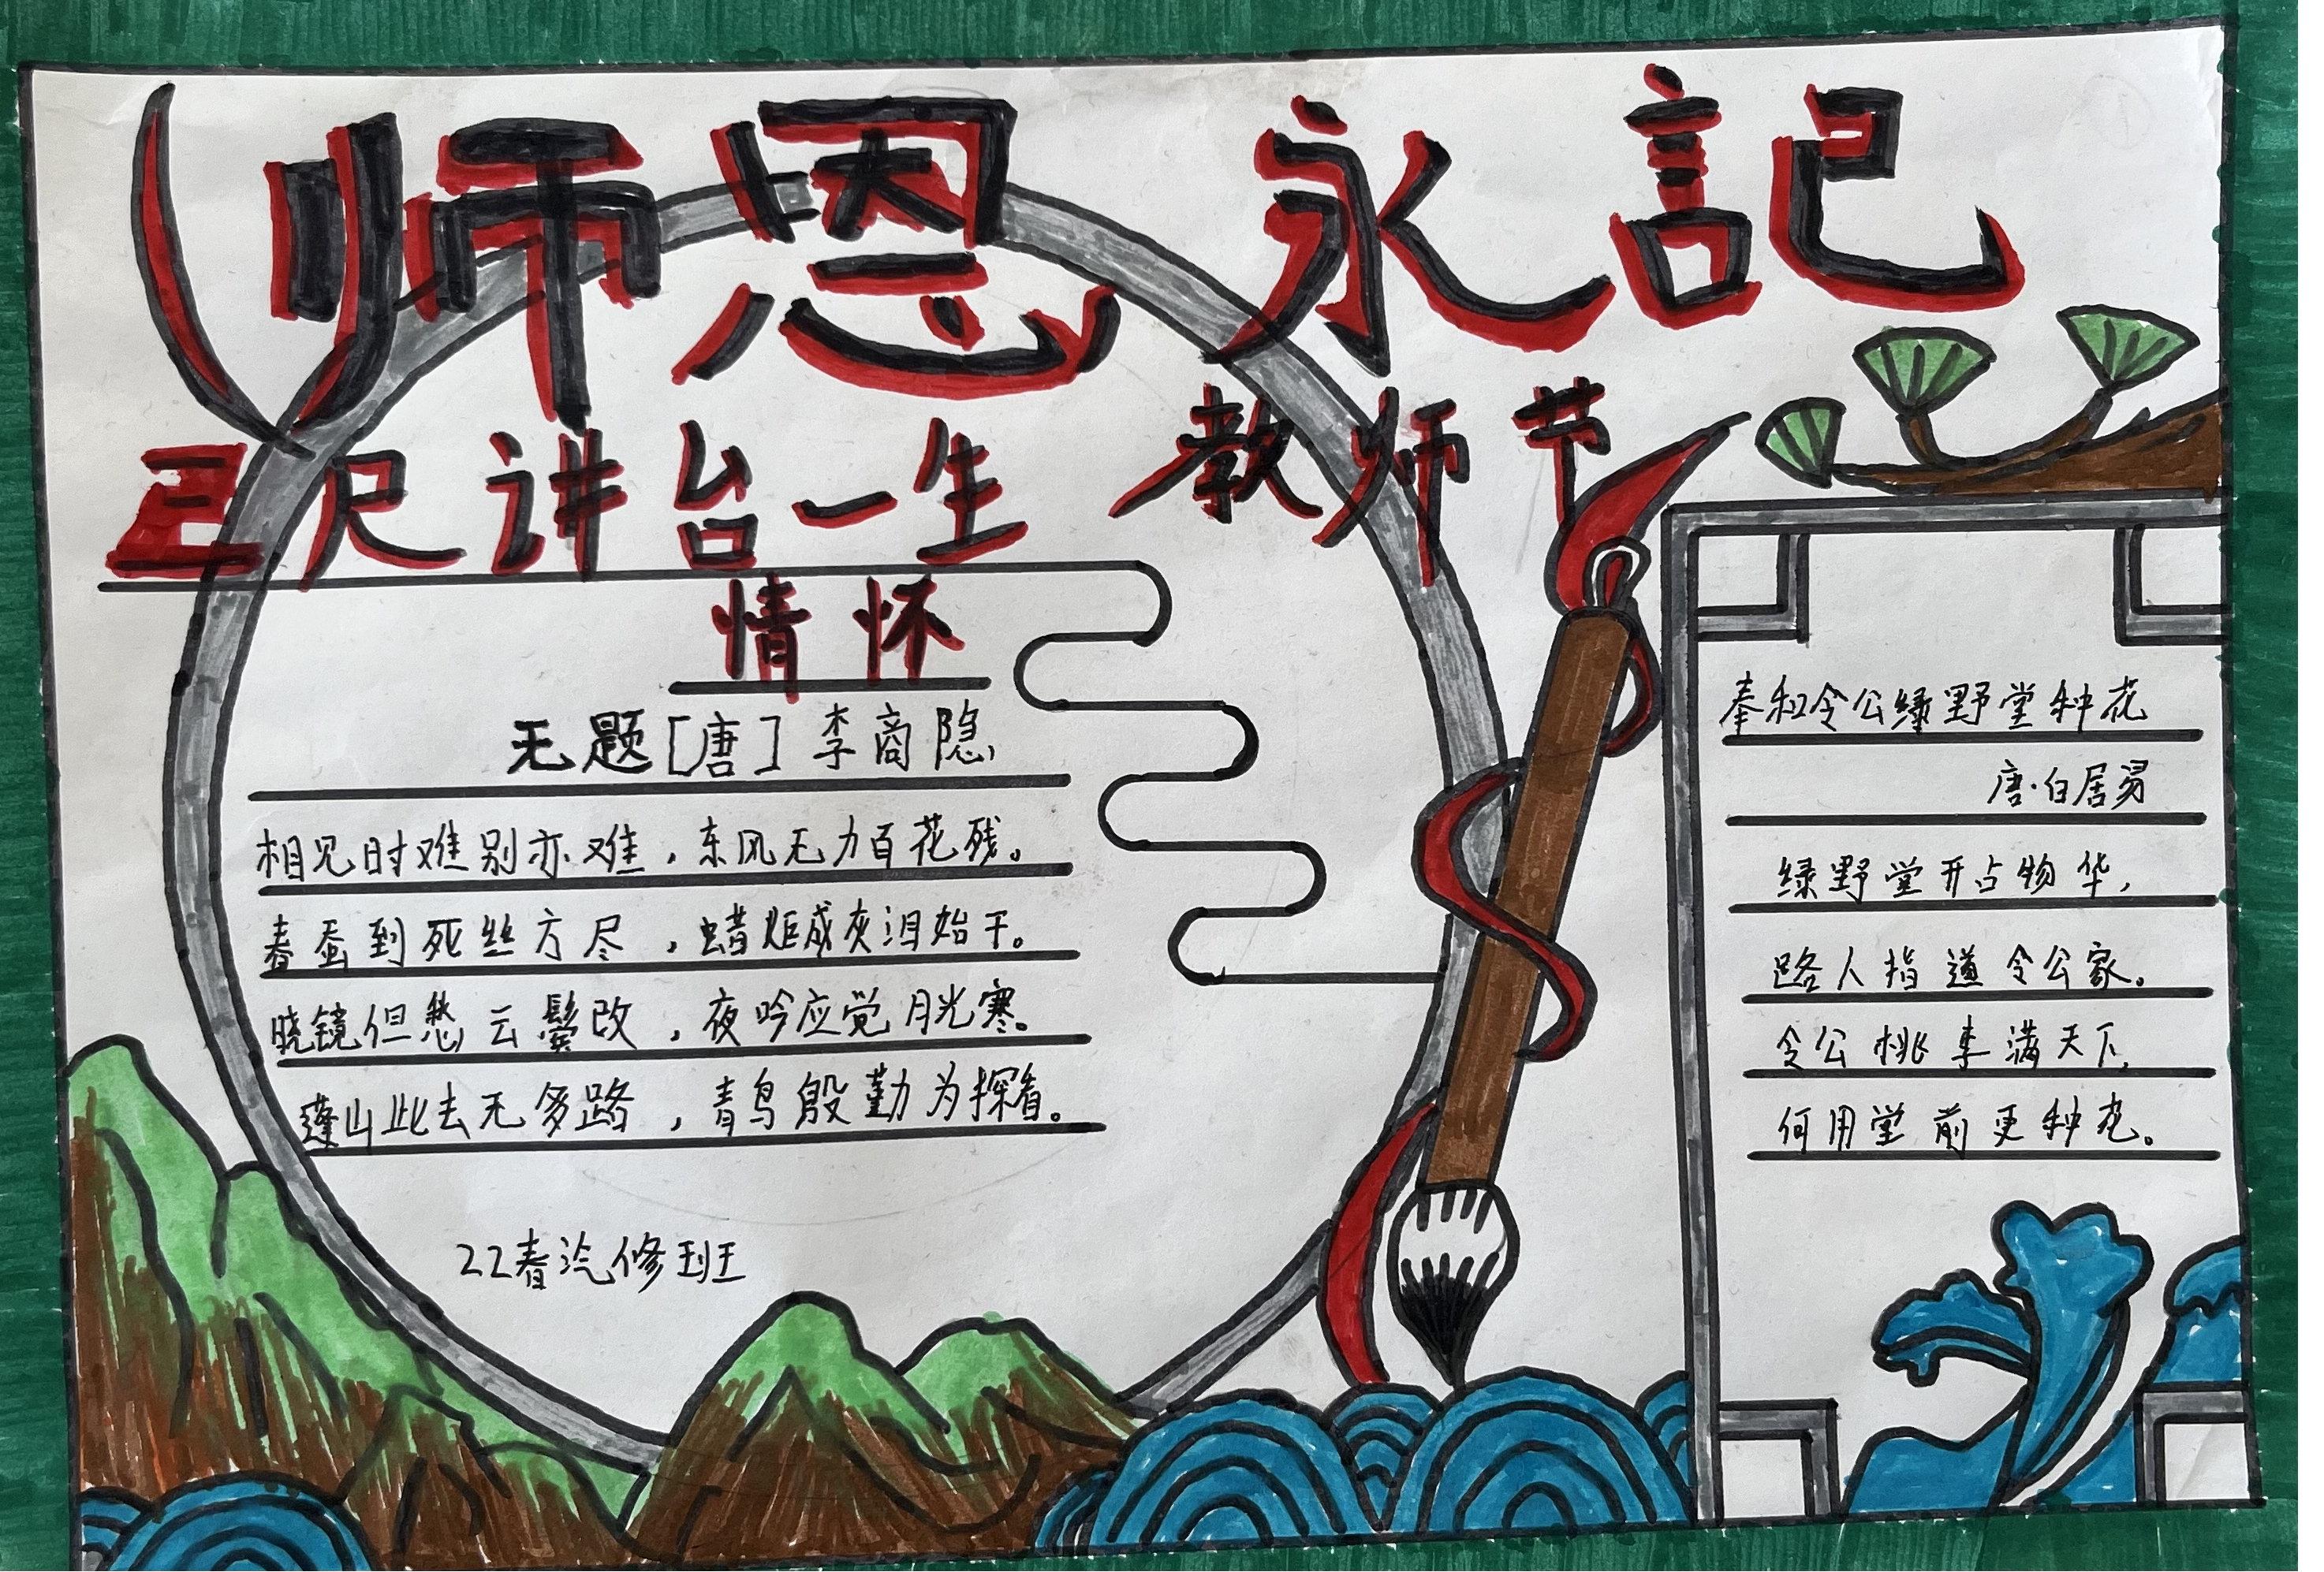 师恩永記
教师节
三尺讲台一生
情怀
无题[唐]李商隐
相见时难别亦难，东风无力百花残。
春蚕到死丝方尽，蜡炬成灰泪始干。
晓镜但愁云鬓改，夜吟应觉月光寒。
蓬山此去无多路，青鸟殷勤为探看。
22春汽修班
奉和令公绿野堂种花
唐·白居易
绿野堂开占物华，
路人指道令公家。
令公桃李满天下，
何用堂前更种花。